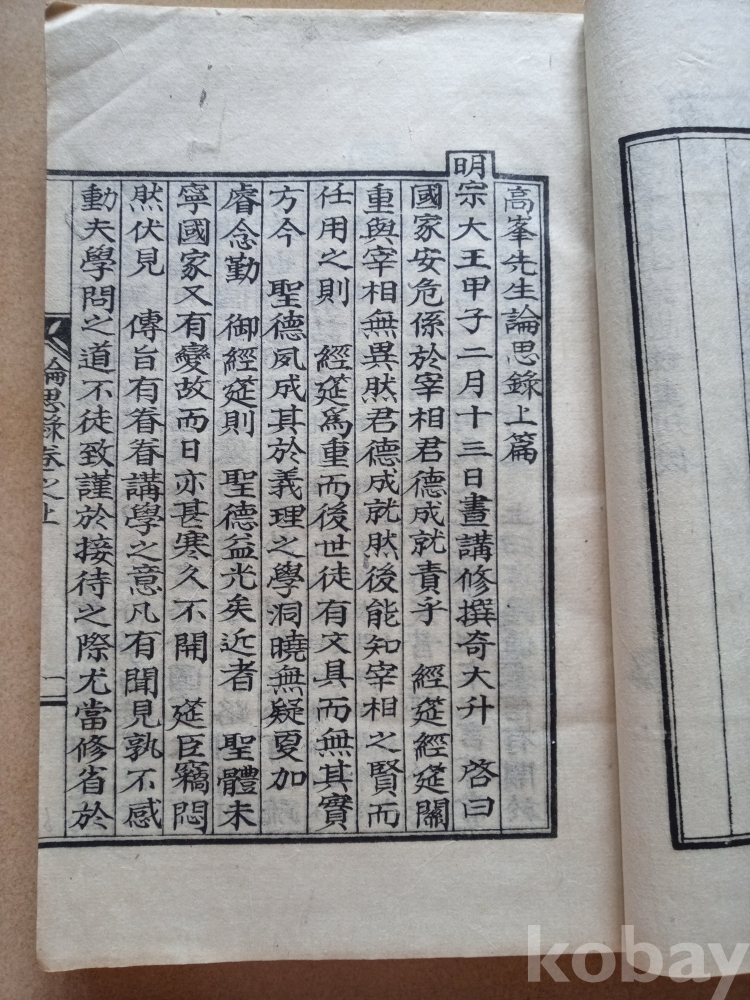 高峯先生論思錄上篇
明宗大王甲子二月十三日晝講修撰奇大升 啓曰
國家安危係於宰相君德成就責乎 經筵經筵關
重與宰相無異然君德成就然後能知宰相之賢而
任用之則 經筵爲重而後世徒有文具而無其實
方今 聖德夙成其於義理之學洞曉無疑更加
睿念勤 御經筵則 聖德益光矣近者 聖體未
寧國家又有變故而日亦甚寒久不開 筵臣竊悶
然伏見 傳旨有眷眷講學之意凡有聞見孰不感
動夫學問之道不徒致謹於接待之際尤當修省於
論思錄卷之上
一
kobay